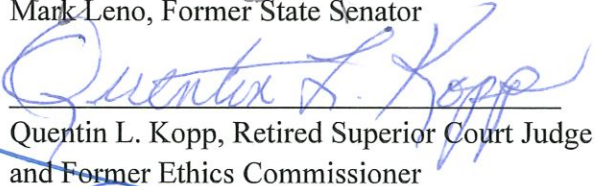 Mark Leno, Former State Senator
Quentin L. Kopp
Quentin L. Kopp, Retired Superior Court Judge
and Former Ethics Commissioner